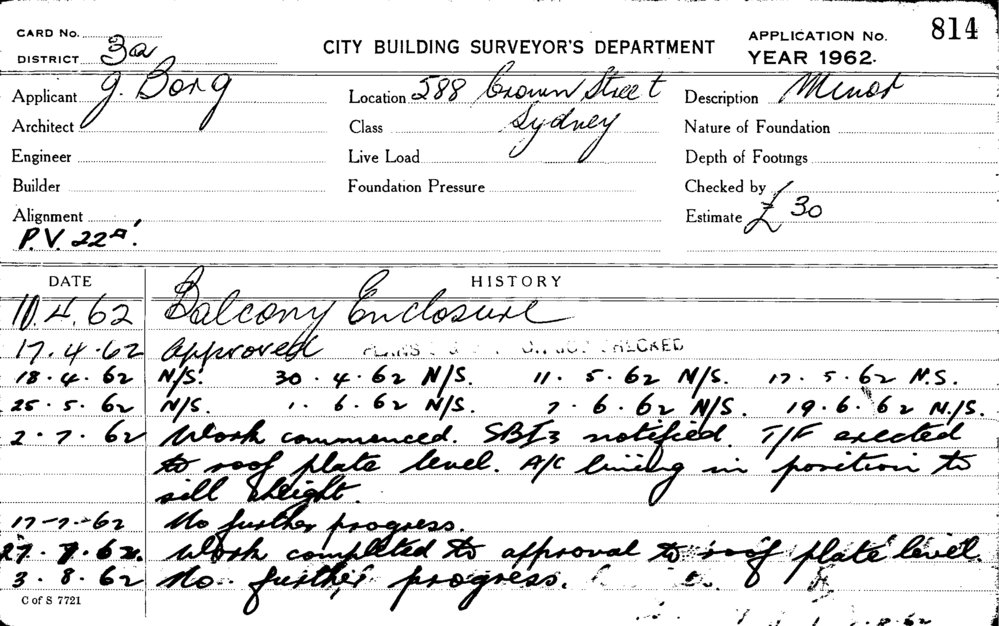 CARD No.
DISTRICT 3a
CITY BUILDING SURVEYOR'S DEPARTMENT
APPLICATION No. 814
YEAR 1962.
Applicant J. Borg
Location 588 Crown Street
Description Minor
Architect
Class Sydney
Nature of Foundation
Engineer
Live Load
Depth of Footings
Builder
Foundation Pressure
Checked by
Alignment
Estimate £ 30
P.V. 22
DATE HISTORY
10.4.62 Balcony Enclosure
17.4.62 Approved PLANS CHECKED
18.4.62 N/S. 30.4.62 N/S. 11.5.62 N/S. 17.5.62 N.S.
25.5.62 N/S. 1.6.62 N/S. 7.6.62 N/S. 19.6.62 N/S.
2.7.62 Work commenced. SBI3 notified. T/F erected
to roof plate level. A/C lining in position to
sill height.
17-7-62 No further progress.
27.7.62. Work completed to approval to roof plate level.
3.8.62 No further progress.
C of S 7721